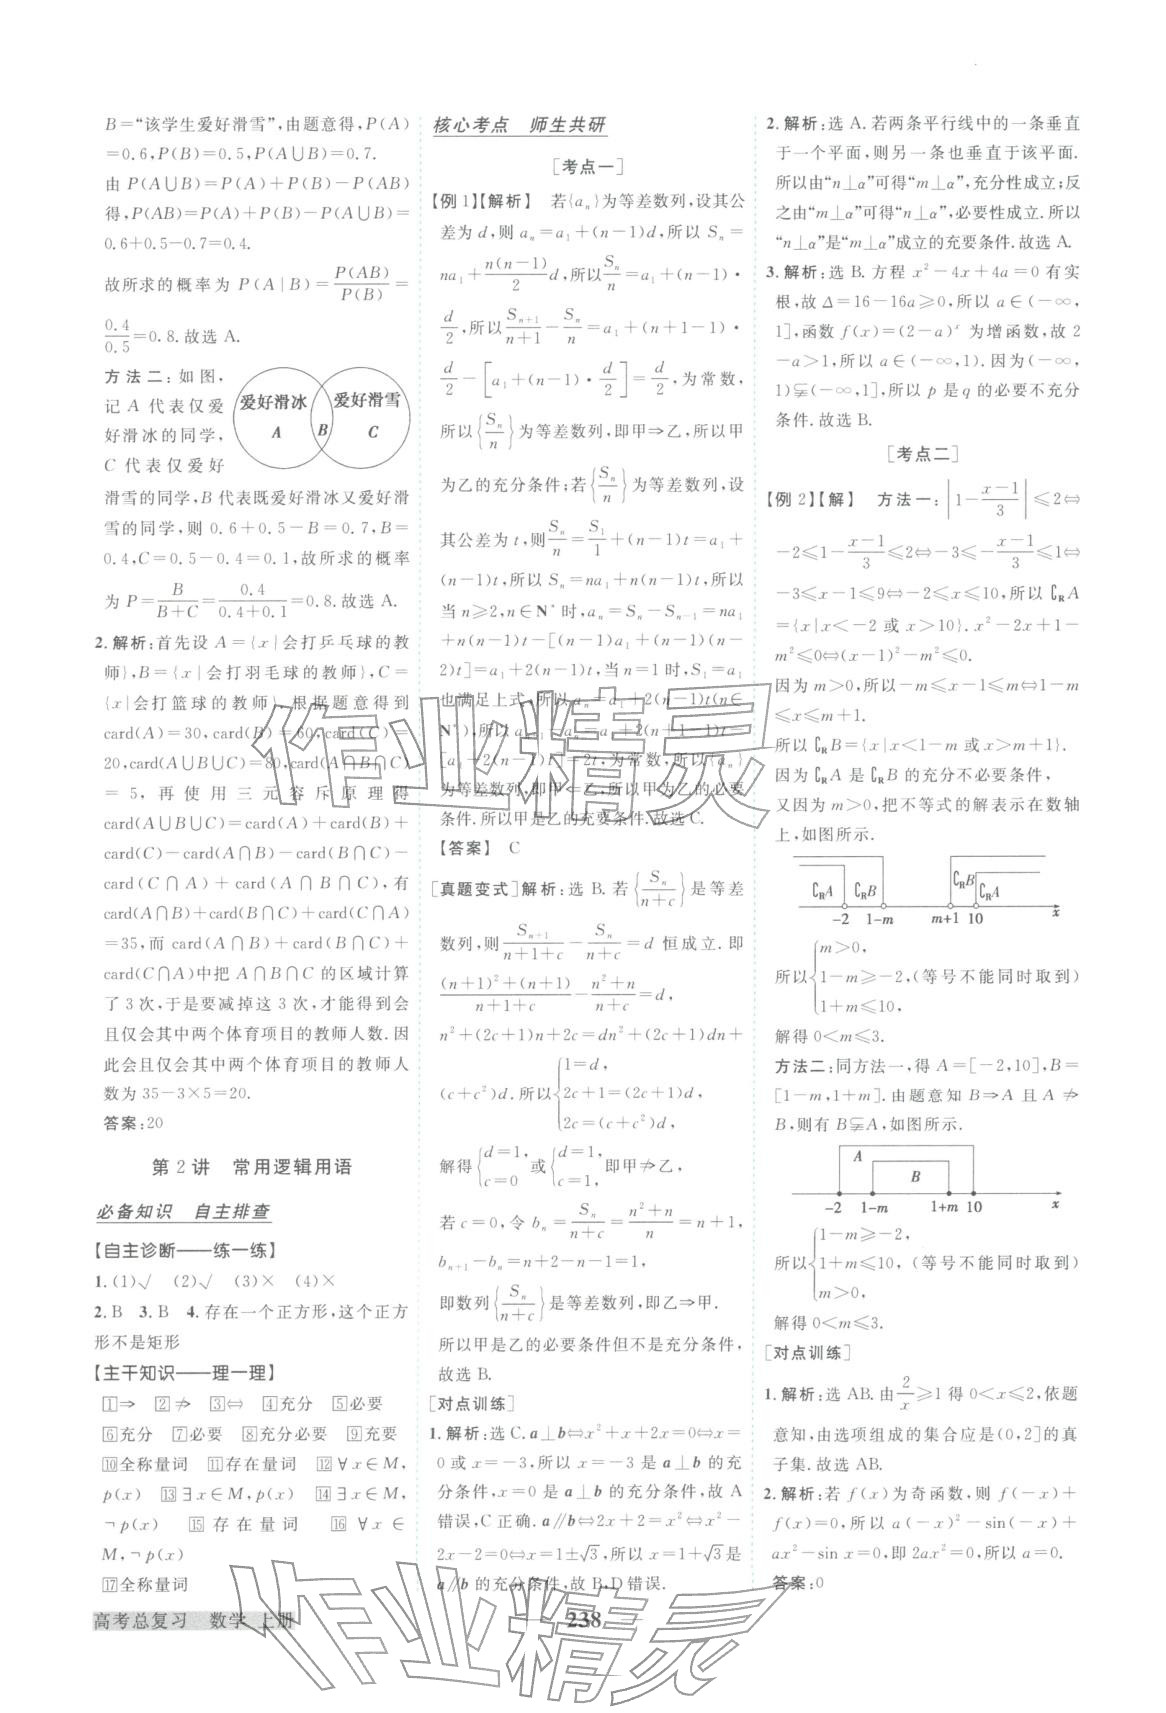 B=“该学生爱好滑雪”,由题意得,P(A)
=0.6,P(B)=0.5,P(A∪B)=0.7.
由 P(A∪B)=P(A)+P(B)-P(AB)
得,P(AB)=P(A)+P(B)-P(A∪B)=
0.6+0.5-0.7=0.4.
故所求的概率为 P(A|B)=P(AB)/P(B)=
0.4/0.5=0.8.故选 A.
方法二:如图,
记 A 代表仅爱
好滑冰的同学,
C 代表仅爱好
爱好滑冰 爱好滑雪
A B C
滑雪的同学,B 代表既爱好滑冰又爱好滑
雪的同学,则 0.6+0.5-B=0.7,B=
0.4,C=0.5-0.4=0.1,故所求的概率
为 P=B/(B+C)=0.4/(0.4+0.1)=0.8.故选 A.
2.解析:首先设 A={x|会打乒乓球的教
师},B={x|会打羽毛球的教师},C=
{x|会打篮球的教师},根据题意得到
card(A)=30,card(B)=60,card(C)=
20,card(A∪B∪C)=80,card(A∩B∩C)
=5,再使用三元容斥原理得
card(A∪B∪C)=card(A)+card(B)+
card(C)-card(A∩B)-card(B∩C)-
card(C∩A)+card(A∩B∩C),有
card(A∩B)+card(B∩C)+card(C∩A)
=35,而 card(A∩B)+card(B∩C)+
card(C∩A)中把 A∩B∩C 的区域计算
了 3 次,于是要减掉这 3 次,才能得到会
且仅会其中两个体育项目的教师人数.因
此会且仅会其中两个体育项目的教师人
数为 35-3×5=20.
答案:20
第 2 讲 常用逻辑用语
必备知识 自主排查
【自主诊断——练一练】
1.(1)√ (2)√ (3)× (4)×
2.B 3.B 4.存在一个正方形,这个正方
形不是矩形
【主干知识——理一理】
1⇒ 2⇏ 3⇔ 4充分 5必要
6充分 7必要 8充分必要 9充要
10全称量词 11存在量词 12∀x∈M,
p(x) 13∃x∈M,p(x) 14∃x∈M,
¬p(x) 15存在量词 16∀x∈
M,¬p(x)
17全称量词
核心考点 师生共研
[考点一]
【例 1】【解析】 若{aₙ}为等差数列,设其公
差为 d,则 aₙ=a₁+(n-1)d,所以 Sₙ=
na₁+n(n-1)/2 d,所以Sₙ/n=a₁+(n-1)·
d/2,所以Sₙ₊₁/(n+1)-Sₙ/n=a₁+(n+1-1)·
d/2-[a₁+(n-1)·d/2]=d/2,为常数,
所以{Sₙ/n}为等差数列,即甲⇒乙,所以甲
为乙的充分条件;若{Sₙ/n}为等差数列,设
其公差为 t,则Sₙ/n=S₁/1+(n-1)t=a₁+
(n-1)t,所以 Sₙ=na₁+n(n-1)t,所以
当 n≥2,n∈N* 时,aₙ=Sₙ-Sₙ₋₁=na₁
+n(n-1)t-[(n-1)a₁+(n-1)(n-
2)t]=a₁+2(n-1)t,当 n=1 时,S₁=a₁
也满足上式,所以 aₙ=a₁+2(n-1)t(n∈
N*),所以 aₙ₊₁-aₙ=a₁+2(n+1-1)t-
[a₁+2(n-1)t]=2t,为常数,所以{aₙ}
为等差数列,即甲⇐乙,所以甲为乙的必要
条件.所以甲是乙的充要条件.故选 C.
【答案】 C
[真题变式]解析:选 B.若{Sₙ/(n+c)}是等差
数列,则Sₙ₊₁/(n+1+c)-Sₙ/(n+c)=d 恒成立.即
((n+1)²+(n+1))/(n+1+c)-(n²+n)/(n+c)=d,
n²+(2c+1)n+2c=dn²+(2c+1)dn+
(c+c²)d.所以{1=d, 2c+1=(2c+1)d, 2c=(c+c²)d,
解得{d=1, c=0 或{d=1, c=1, 即甲⇏乙,
若 c=0,令 bₙ=Sₙ/(n+c)=(n²+n)/n=n+1,
bₙ₊₁-bₙ=n+2-n-1=1,
即数列{Sₙ/(n+c)}是等差数列,即乙⇒甲.
所以甲是乙的必要条件但不是充分条件,
故选 B.
[对点训练]
1.解析:选 C.a⊥b⇔x²+x+2x=0⇔x=
0 或 x=-3,所以 x=-3 是 a⊥b 的充
分条件,x=0 是 a⊥b 的充分条件,故 A
错误,C 正确.a∥b⇔2x+2=x²⇔x²-
2x-2=0⇔x=1±√3,所以 x=1+√3是
a∥b 的充分条件,故 B,D 错误.
2.解析:选 A.若两条平行线中的一条垂直
于一个平面,则另一条也垂直于该平面.
所以由“n⊥α”可得“m⊥α”,充分性成立;反
之由“m⊥α”可得“n⊥α”,必要性成立.所以
“n⊥α”是“m⊥α”成立的充要条件.故选 A.
3.解析:选 B.方程 x²-4x+4a=0 有实
根,故 Δ=16-16a≥0,所以 a∈(-∞,
1],函数 f(x)=(2-a)ˣ 为增函数,故 2
-a>1,所以 a∈(-∞,1).因为(-∞,
1)⫋(-∞,1],所以 p 是 q 的必要不充分
条件.故选 B.
[考点二]
【例 2】【解】 方法一:|1-(x-1)/3|≤2⇔
-2≤1-(x-1)/3≤2⇔-3≤-(x-1)/3≤1⇔
-3≤x-1≤9⇔-2≤x≤10,所以∁RA
={x|x<-2 或 x>10}.x²-2x+1-
m²≤0⇔(x-1)²-m²≤0.
因为 m>0,所以-m≤x-1≤m⇔1-m
≤x≤m+1.
所以∁RB={x|x<1-m 或 x>m+1}.
因为∁RA 是∁RB 的充分不必要条件,
又因为 m>0,把不等式的解表示在数轴
上,如图所示.
∁RA ∁RB ∁RB ∁RA
-2 1-m m+1 10 x
所以{m>0, 1-m≥-2, 1+m≤10, (等号不能同时取到)
解得 0<m≤3.
方法二:同方法一,得 A=[-2,10],B=
[1-m,1+m].由题意知 B⇒A 且 A⇏
B,则有 B⫋A,如图所示.
A
B
-2 1-m 1+m 10 x
所以{1-m≥-2, 1+m≤10, m>0, (等号不能同时取到)
解得 0<m≤3.
[对点训练]
1.解析:选 AB.由2/x≥1 得 0<x≤2,依题
意可知,由选项组成的集合应是(0,2]的真
子集.故选 AB.
2.解析:若 f(x)为奇函数,则 f(-x)+
f(x)=0,所以 a(-x)²-sin(-x)+
ax²-sin x=0,即 2ax²=0,所以 a=0.
答案:0
高考总复习 数学 上册
238
作业精灵
作业精灵